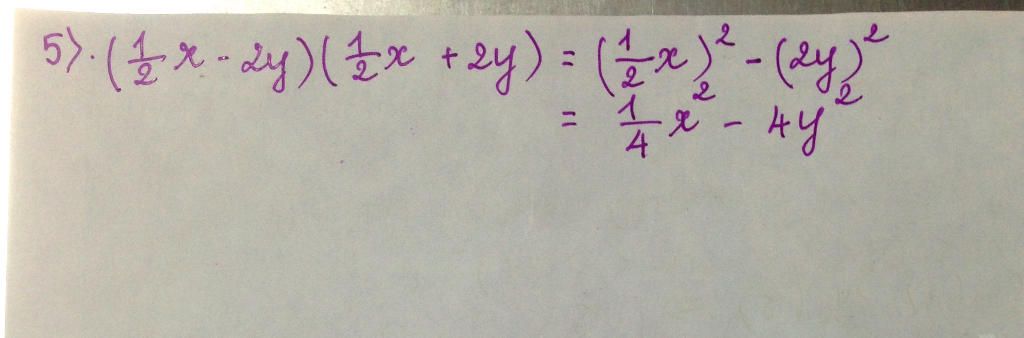 5). (1/2 x - 2y)(1/2 x + 2y) = (1/2 x)² - (2y)²
= 1/4 x² - 4y²